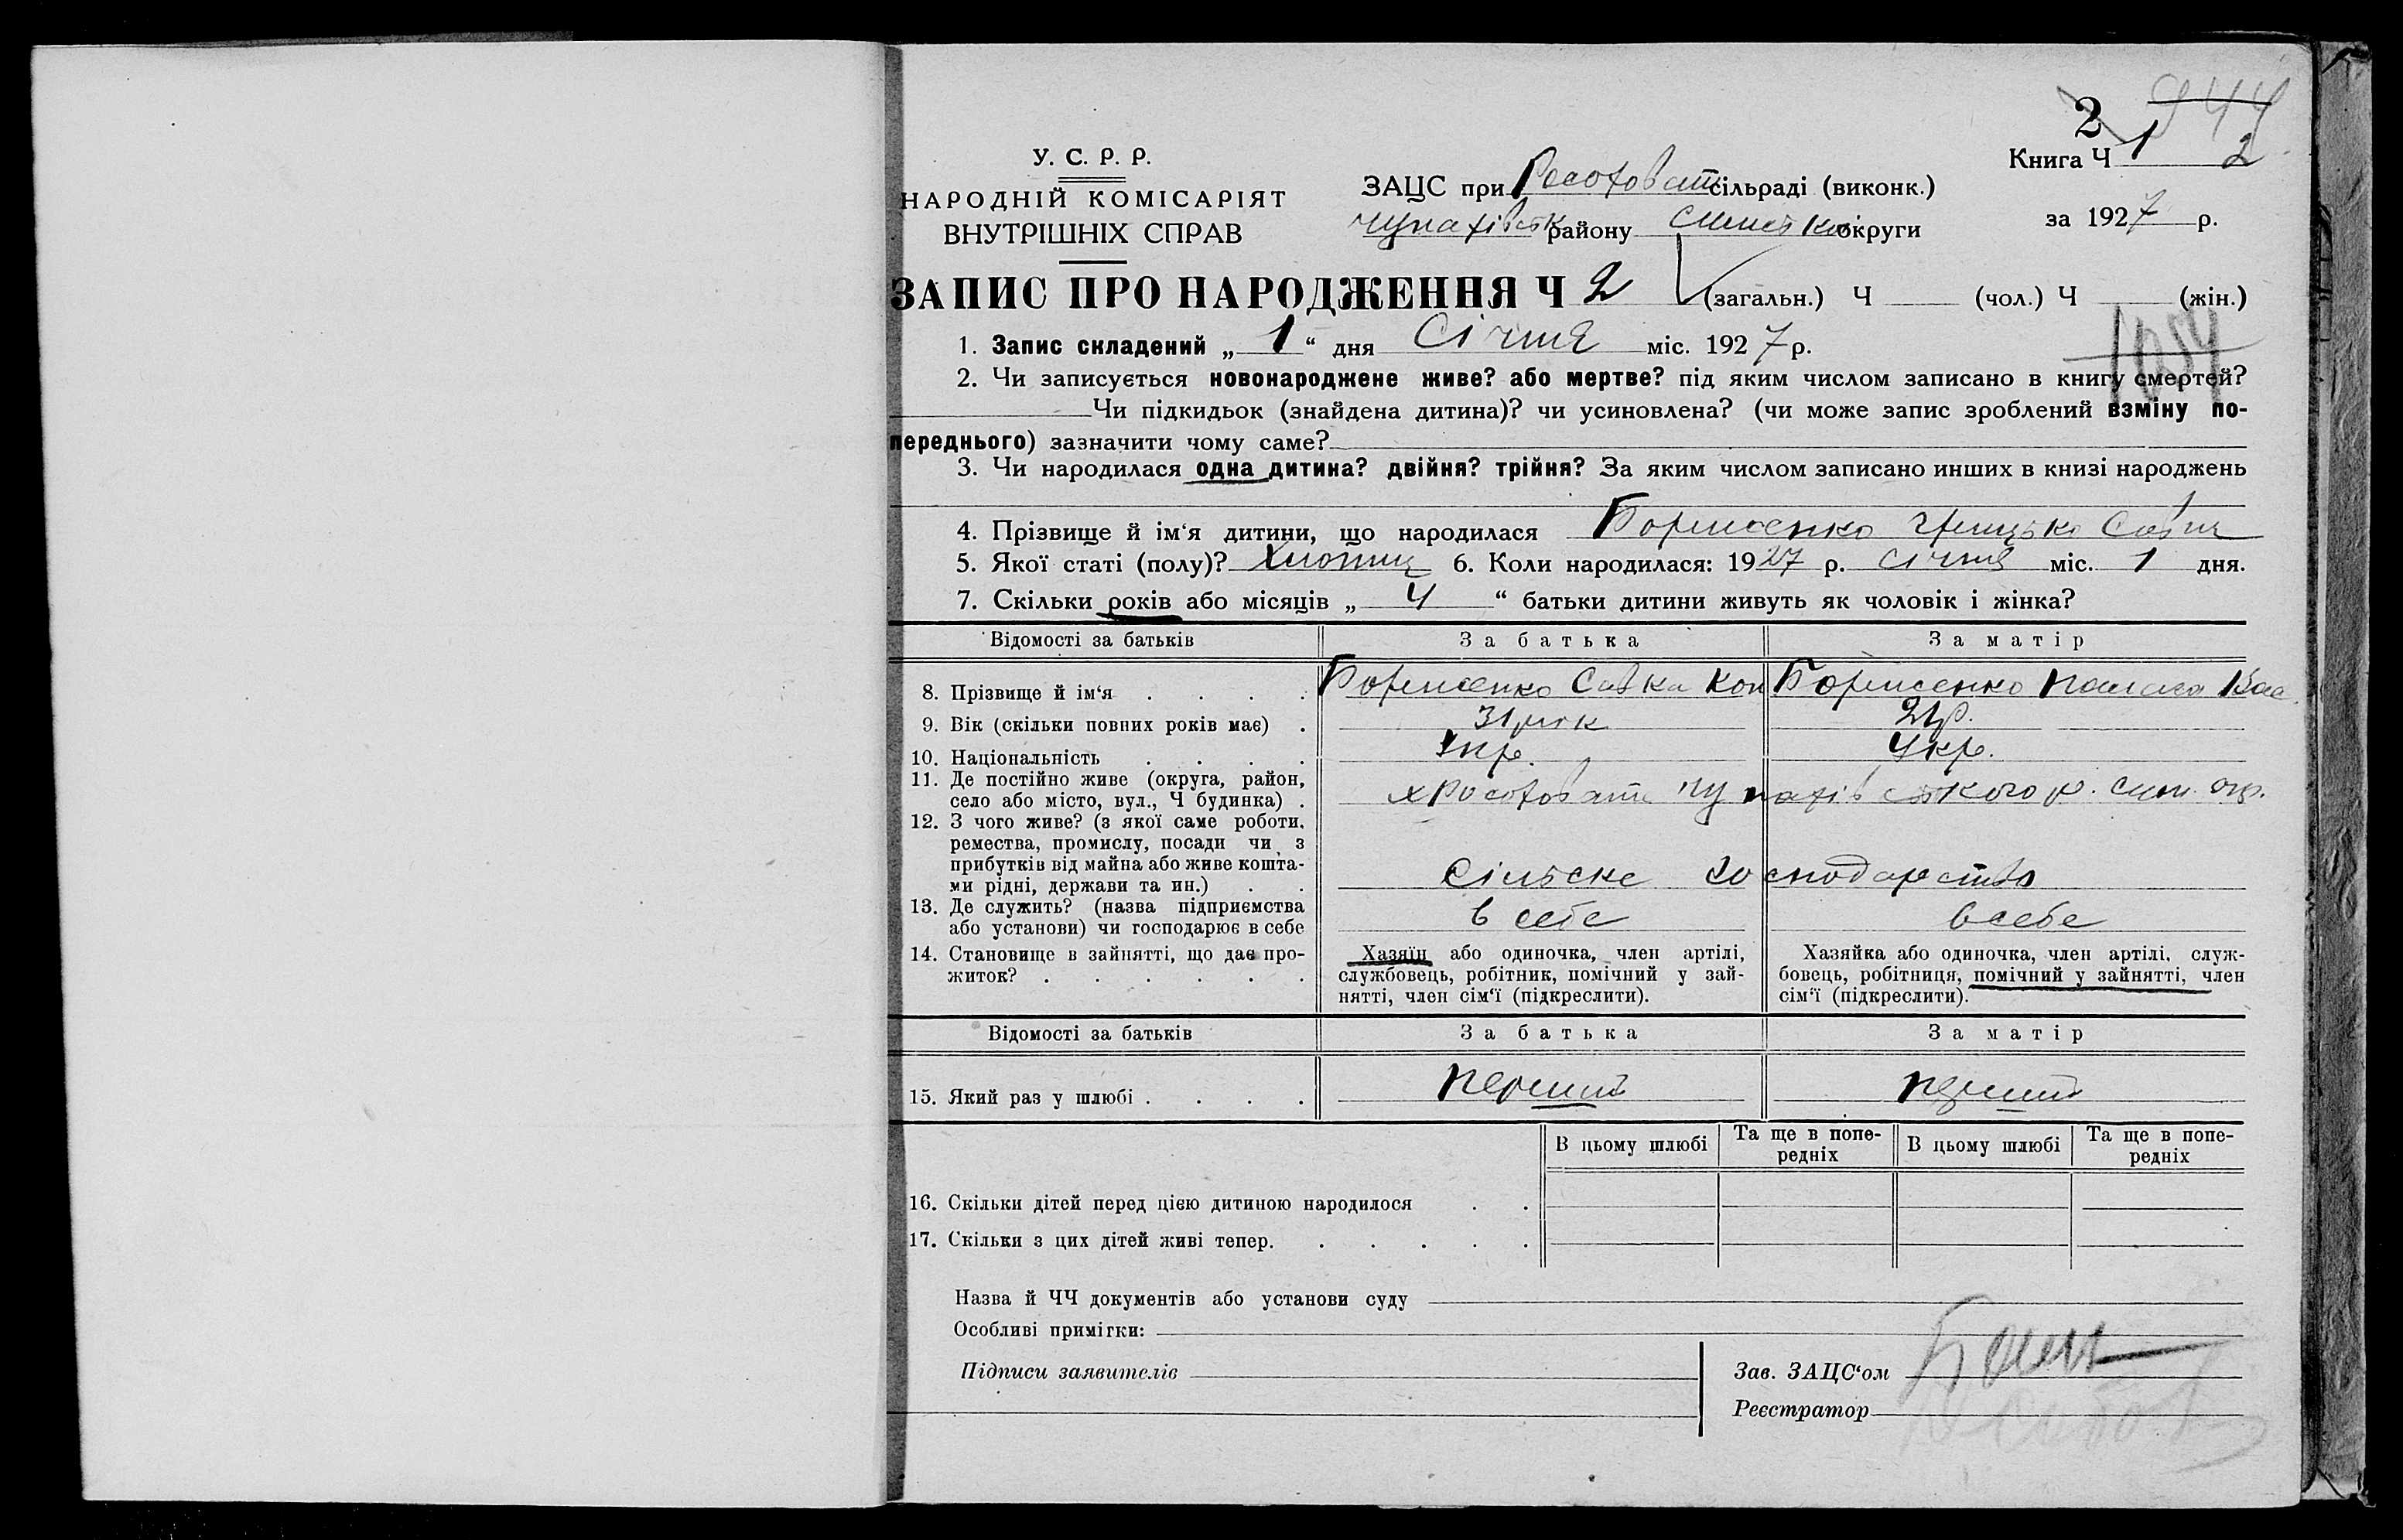 2
944
Книга Ч 1 2
за 1927 р.
У. С. Р. Р.
НАРОДНІЙ КОМІСАРІЯТ
ВНУТРІШНІХ СПРАВ
ЗАЦС при сільраді (виконк.)
Чупахівськ району округи
ЗАПИС ПРО НАРОДЖЕННЯ Ч 2 (загальн.) Ч (чол.) Ч (жін.)
1. Запис складений „ 1 “ дня Січня міс. 1927 р.
2. Чи записується новонароджене живе? або мертве? під яким числом записано в книгу смертей?
Чи підкидьок (знайдена дитина)? чи усиновлена? (чи може запис зроблений взміну по-
переднього) зазначити чому саме?
3. Чи народилася одна дитина? двійня? трійня? За яким числом записано инших в книзі народжень
4. Прізвище й ім‘я дитини, що народилася Борисенко Грицько Савич
5. Якої статі (полу)? Хлопець 6. Коли народилася: 1927 р. січня міс. 1 дня.
7. Скільки років або місяців „ 4 “ батьки дитини живуть як чоловік і жінка?
Відомості за батьків За батька За матір
8. Прізвище й ім‘я . . . . Борисенко Савка Кон Борисенко Вас.
9. Вік (скільки повних років має) . 31 рік
10. Національність . . . . Укр. Укр.
11. Де постійно живе (округа, район,
село або місто, вул., Ч будинка) . чупахівського р.
12. З чого живе? (з якої саме роботи,
ремества, промислу, посади чи з
прибутків від майна або живе кошта-
ми рідні, держави та ин.) . . Сільське господарство
13. Де служить? (назва підприємства
або установи) чи господарює в себе в себе в себе
14. Становище в зайнятті, що дає про-
житок? . . . . . .
Хазяїн або одиночка, член артілі,
службовець, робітник, помічний у зай-
нятті, член сім‘ї (підкреслити).
Хазяйка або одиночка, член артілі, служ-
бовець, робітниця, помічний у зайнятті, член
сім‘ї (підкреслити).
Відомості за батьків За батька За матір
15. Який раз у шлюбі . . . . перший перший
В цьому шлюбі Та ще в попе-
редніх В цьому шлюбі Та ще в попе-
редніх
16. Скільки дітей перед цією дитиною народилося . .
17. Скільки з цих дітей живі тепер. . . . . .
Назва й ЧЧ документів або установи суду
Особливі примігки:
Підписи заявителів
Зав. ЗАЦС‘ом
Реєстратор